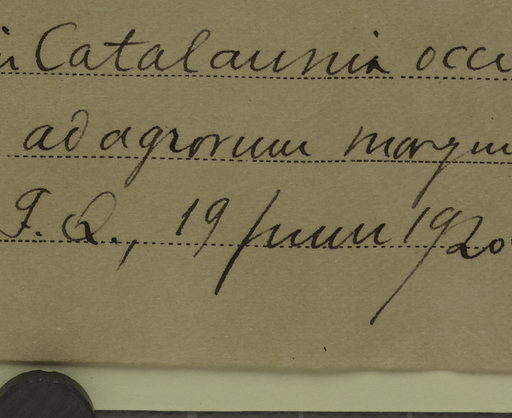 in Catalaunia occi
ad agrorum margin
F. Q., 19 Junii 1920